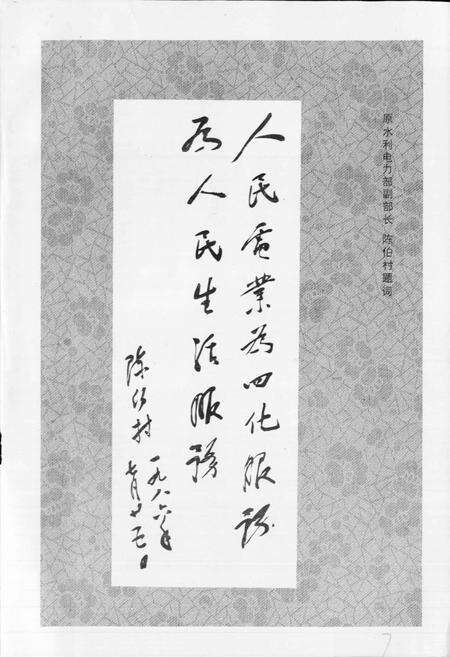 原水利电力部副部长 陈伯村题词
人民電業为四化服務
为人民生活服務
陈伯村
一九八六年
七月廿五日
7